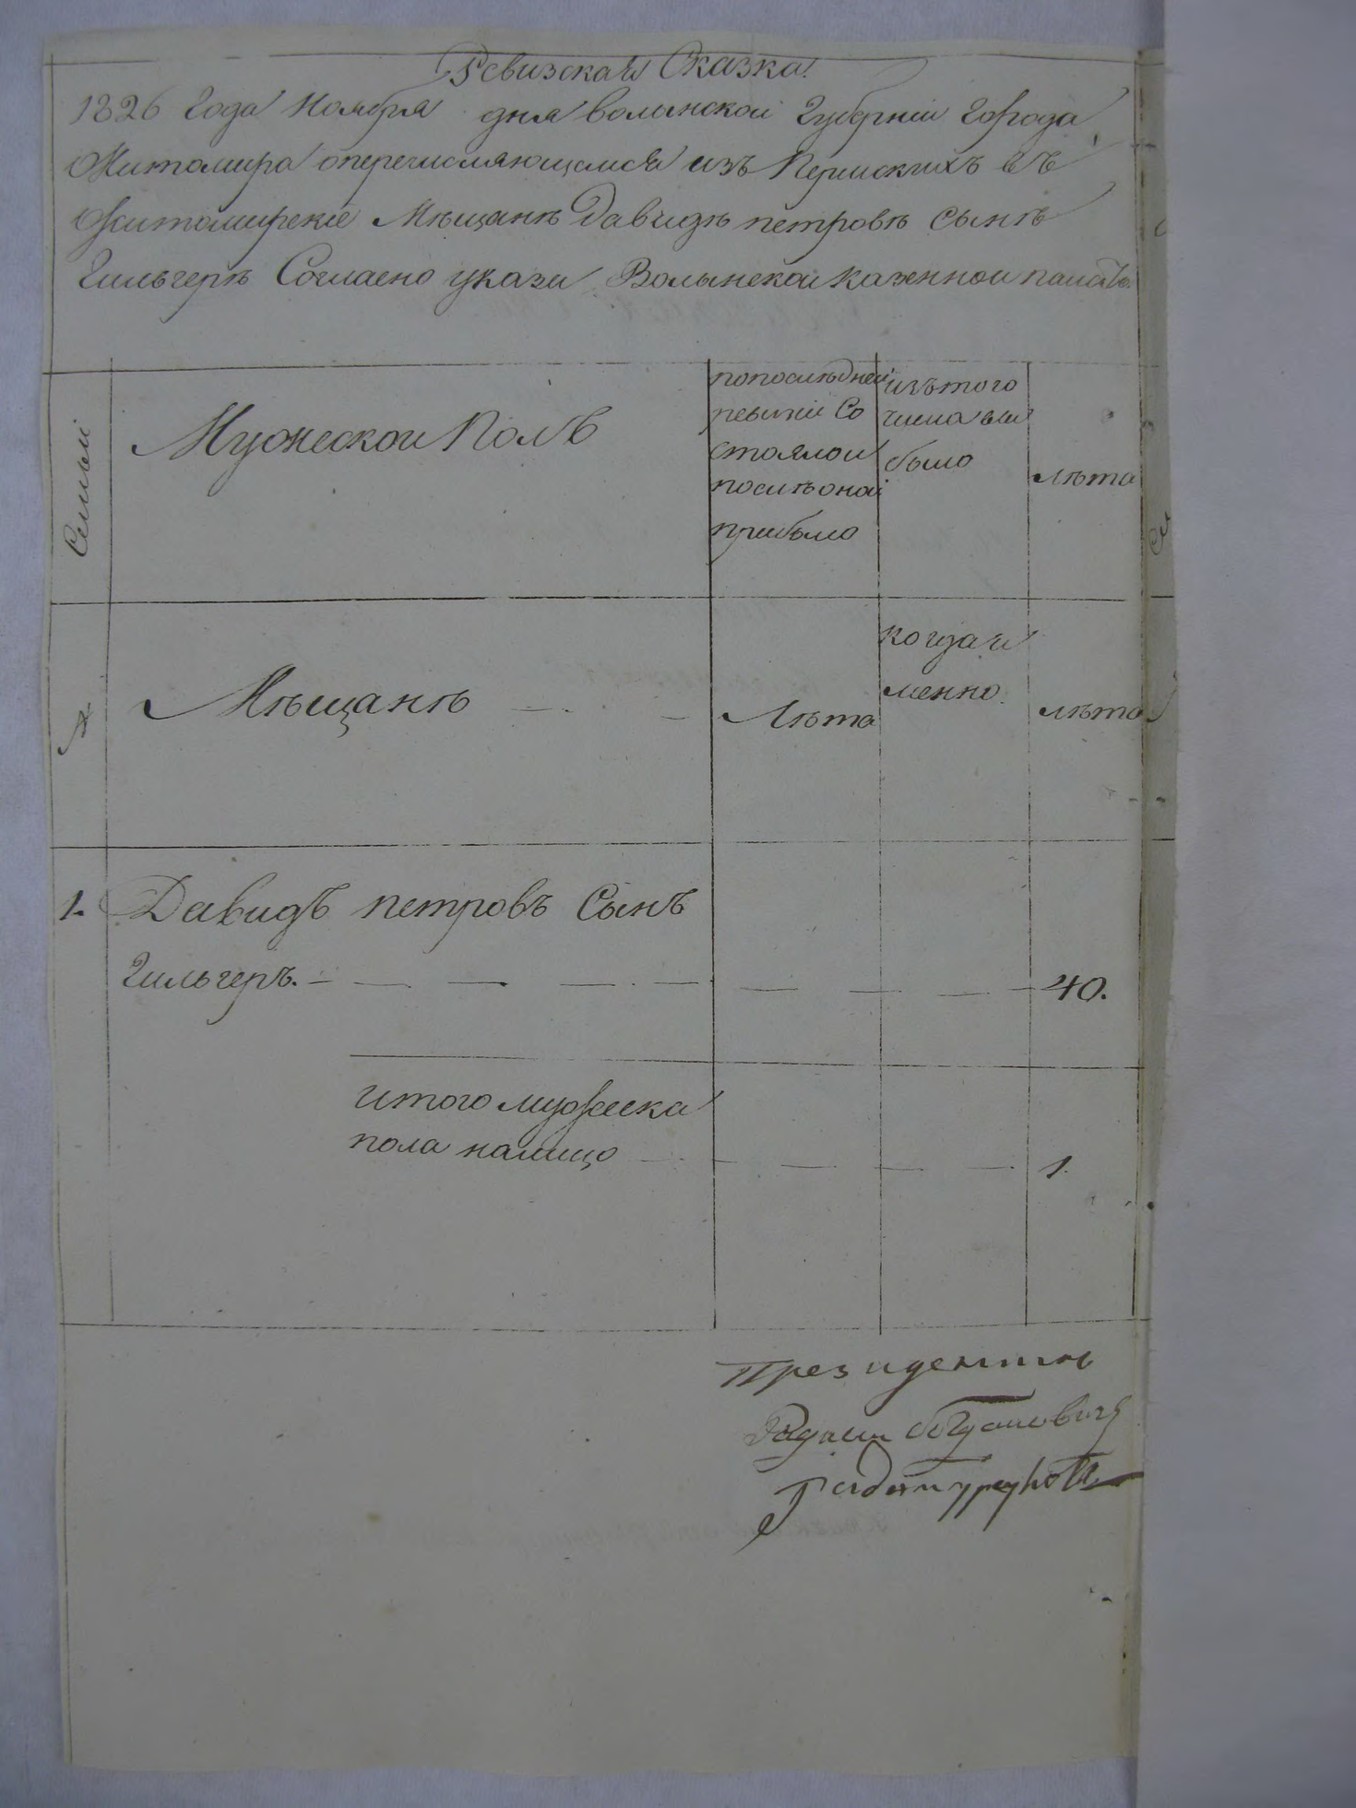 Ревизская Сказка
1826 Года Ноября дня волынской Губернии Города
Житомира о перечисляющемся изъ Пермскихъ въ
Житомирские Мѣщанъ Давидъ петровъ сынъ
Гильгеръ Согласно указа Волынской казенной палаты
Семьи
Мужеской Полъ
по последней
ревизии Со
стояло и
после оной
прибыло
изъ того
числа вы
было
лѣта
Мѣщанъ
Лѣта
когда и
менно
лѣта
1. Давидъ петровъ Сынъ
Гильгеръ. 40.
итого мужеска
пола налицо 1.
Президентъ